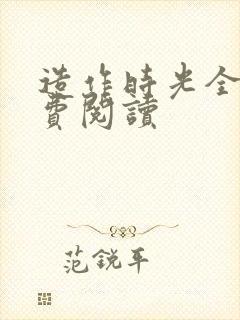 造作時光全
費閱讀
范銳平